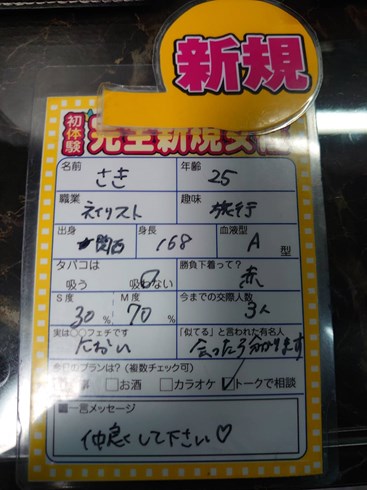 新規
初体験
完全新規女性
名前 さき 年齢 25
職業 ネイリスト 趣味 旅行
出身 関西 身長 168 血液型 A 型
タバコは 吸う 吸わない 勝負下着って? 赤
S度 30% M度 70% 今までの交際人数 3人
実は○○フェチです におい 「似てる」と言われた有名人 会ったら分かります
今日のプランは?(複数チェック可)
□お酒 □カラオケ ☑トークで相談
■一言メッセージ
仲良くして下さい♡